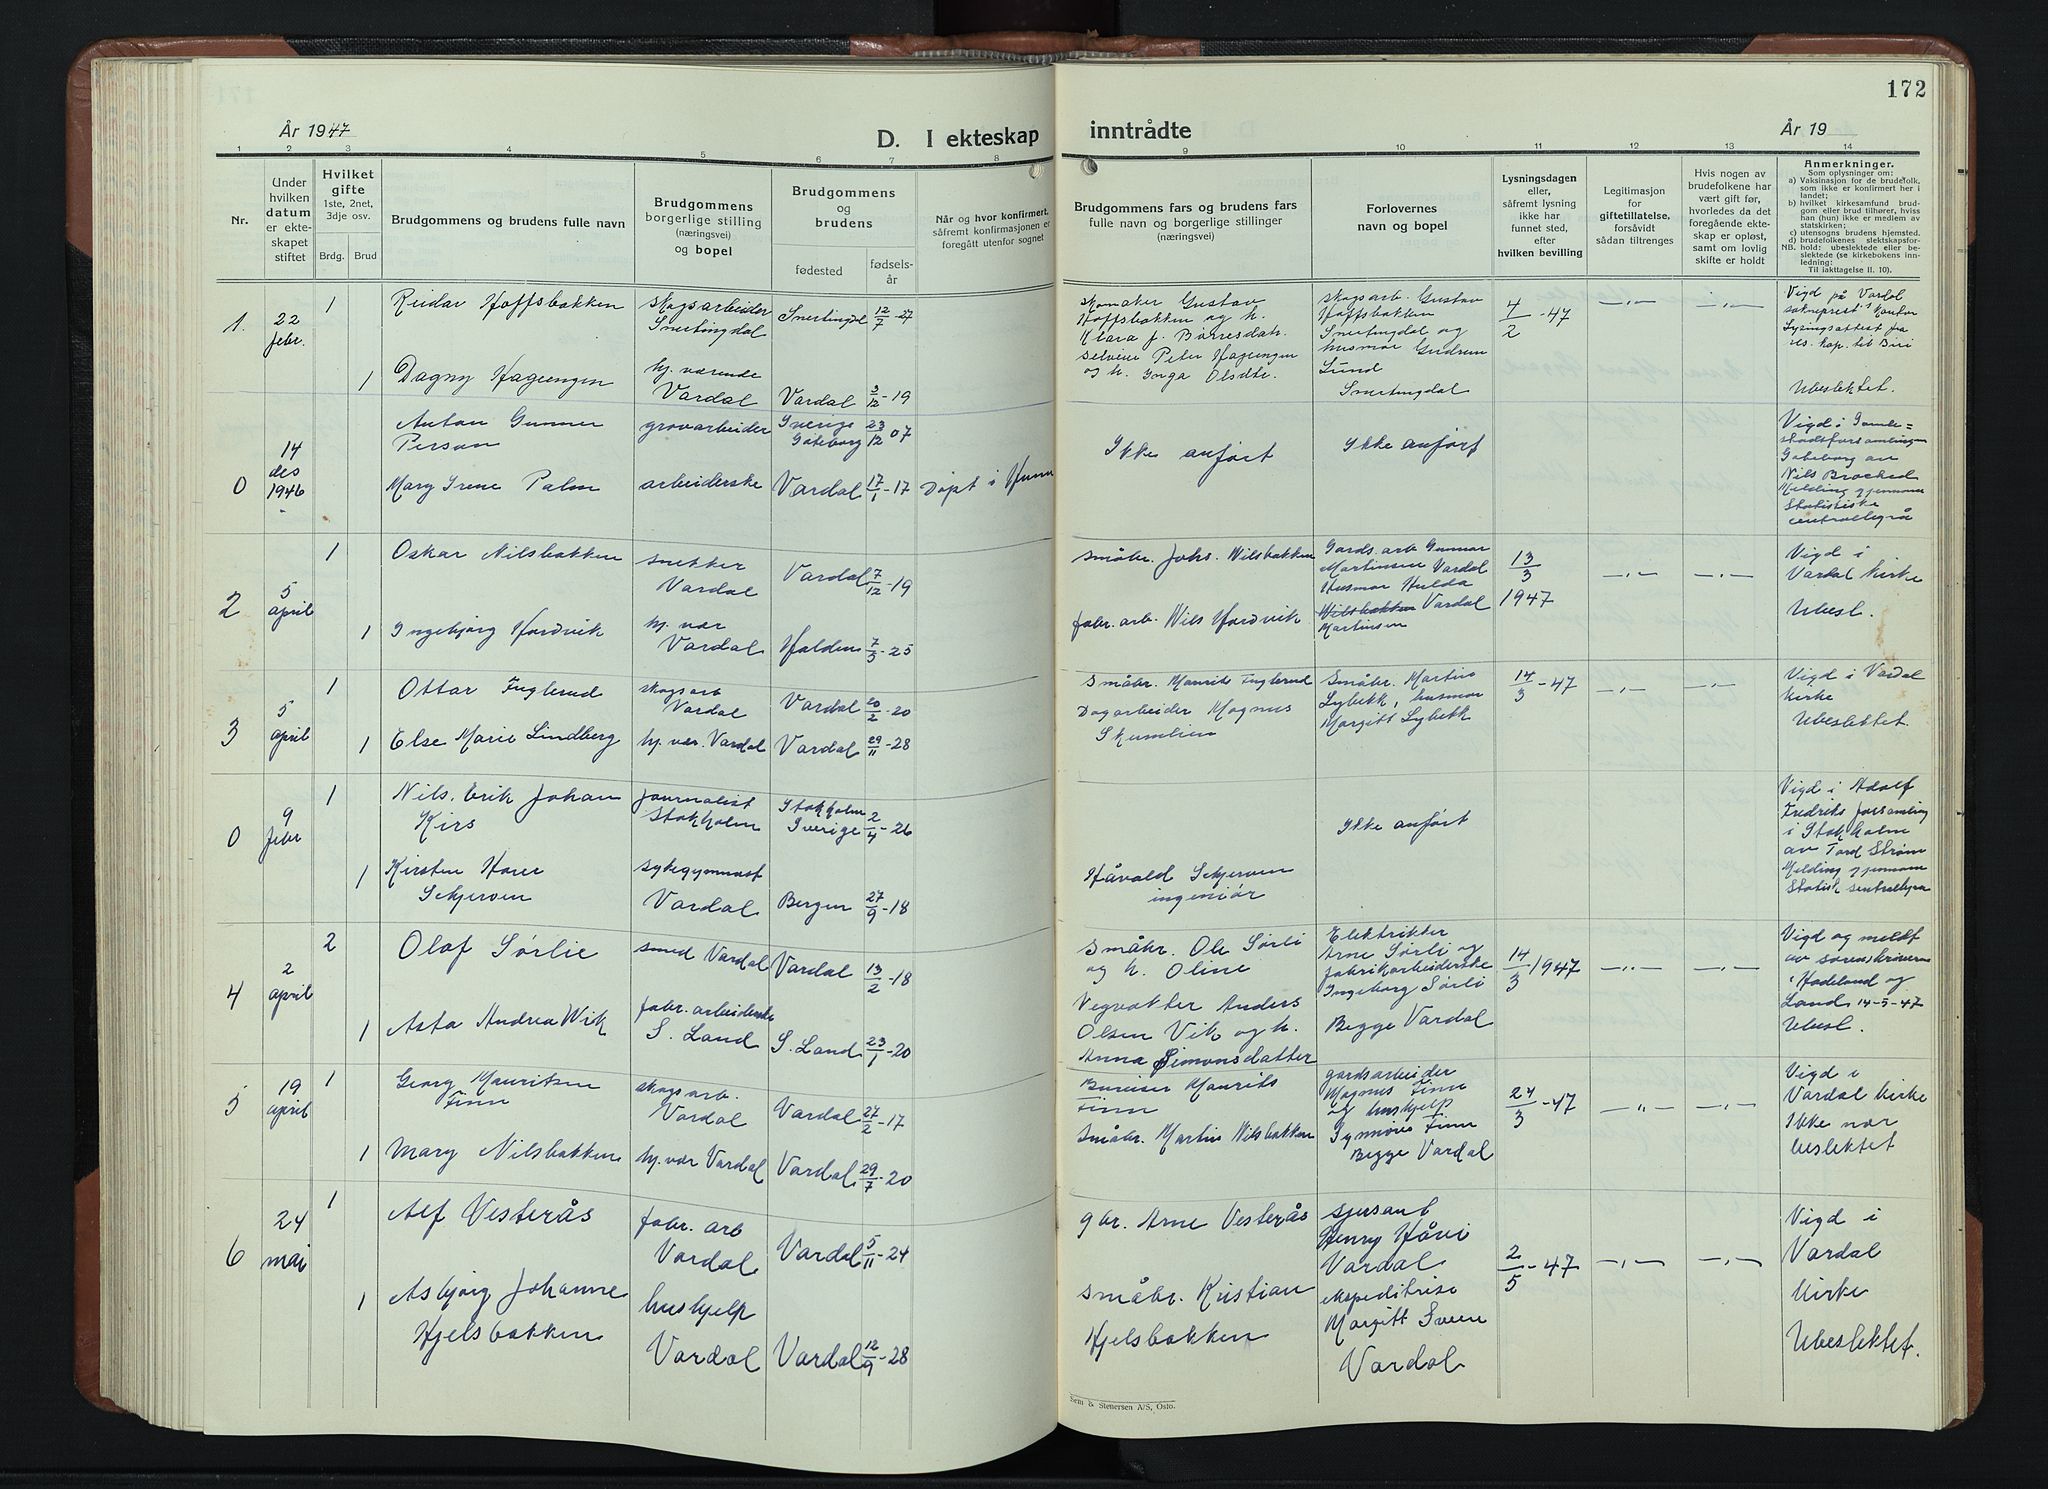 172
År 1947
D. I ekteskap
inntrådte
År 19
1 2 3 4 5 6 7 8
9 10 11 12 13 14
Nr.
Under hvilken datum er ekte-skapet stiftet
Hvilket gifte 1ste, 2net, 3dje osv.
Brdg. Brud
Brudgommens og brudens fulle navn
Brudgommens borgerlige stilling (næringsvei) og bopel
Brudgommens og brudens
fødested
fødsels-år
Når og hvor konfirmert, såfremt konfirmasjonen er foregått utenfor sognet
Brudgommens fars og brudens fars fulle navn og borgerlige stillinger (næringsvei)
Forlovernes navn og bopel
Lysningsdagen eller, såfremt lysning ikke har funnet sted, efter hvilken bevilling
Legitimasjon for giftetillatelse, forsåvidt sådan tiltrenges
Hvis nogen av brudefolkene har vært gift før, hvorledes da det foregående ekte-skap er opløst, samt om lovlig skifte er holdt
Anmerkninger.
Som oplysninger om:
a) Vaksinasjon for de brudefolk, som ikke er konfirmert her i landet;
b) hvilket kirkesamfund brud-gom eller brud tilhører, hviss han (hun) ikke er medlem av statskirken;
c) utensogns brudens hjemsted.
d) brudefolkenes slektskapsfor-hold: ubeslektede eller be-slektede (se kirkebokens inn-ledning:
NB.
Til iakttagelse II. 10).
1. 22 febr. 1 Reidar Hoffsbakken
skogsarbeider Snertingdal
Snertingdal 12/7-27
1 Dagny Hagungen
hj. værende Vardal
Vardal 3/12-19
Skomaker Gustav
Hoffsbakken og h.
Klara f. Børresdatr.
Selveier Peter Hagungen
og h. Inga Olsdtr.
skogsarb. Gustav
Hoffsbakken
Snertingdal og
husmor Gudrun
Lund
Snertingdal
4/2-47
—"—
—"—
Vigd på Vardal
sokneprest's kontor
Lysingsattest fra
res. kap. til Biri
Ubeslektet.
0 14 des 1946
Anton Gunnar
Person
grovarbeider
Sverige Göteborg 23/12 07
Mary Irene Palm
arbeiderske
Vardal 17/1-17
Døpt i Hunn
Ikke anført
Ikke anført
Vigd i Gamle=
stadsforsamlingen
Göteborg av
Nils
Melding gjennom
Statistiske
centralbyrå
2 5 april 1 Oskar Nilsbakken
snekker Vardal
Vardal 7/12-19
1 Ingebjørg Hordvik
hj. vær Vardal
Halden 7/5-25
Småbr. Johs. Nilsbakken
fabr. arb. Nils Hordvik
Gards. arb. Gunnar
Martinsen Vardal
Husmor Hulda
Nilsbakken Vardal
Martinsen
13/3 1947
—"—
—"—
Vigd i
Vardal kirke
Ubesl.
3 5 april 1 Ottar Fuglerud
skogsarb Vardal
Vardal 20/2-20
1 Else Marie Lindberg
hj. vær. Vardal
Vardal 29/11-28
Småbr. Maurits Fuglerud
Dagarbeider Magnus
Skumlien
Småbr. Martius
Lybekk, husmor
Margitt Lybekk
14/3-47
—"—
—"—
Vigd i Vardal
kirke
Ubeslektet.
0 9 febr 1 Nils. Erik Johan
Kirs
Journalist Stokholm
Stokholm Sverige 2/4-26
1 Kirsten Horer
Schjerven
sykegymnast Vardal
Bergen 27/9-18
Håvald Schjerven
ingeniør
Ikke anført
Vigd i Adolf
Fredriks forsamling
i Stokholm
av Tord Strøm
Melding gjennom
Statist. sentralbyrå
4 2 april 2 Olaf Sørlie
smed Vardal
Vardal 13/2-18
1 Asta Andrea Wik
fabr. arbeiderske S. Land
S. Land 23/1-20
Småbr. Ole Sørli
og h. Oline
Vegvokter Anders
Olsen Vik og h.
Anna Simonsdatter
Elektriker
Arne Sørli og
fabrikarbeiderske
Ingeborg Sørli
Begge Vardal
14/3 1947
—"—
—"—
Vigd og meldt
av sorenskriveren
i Hadeland og
Land 14-5-47
Ubesl.
5 19 april 1 Georg Mauritsen
Finn
skogsarb. Vardal
Vardal 27/2-17
1 Mary Nilsbakken
hj. vær Vardal
Vardal 29/7-20
Bureiser Maurits
Finn
Småbr. Martin Nilsbakken
gardsarbeider
Magnus Finn
og hushjelp
Synnøve Finn
Begge Vardal
24/3-47
—"—
—"—
Vigd i
Vardal kirke
Ikke nær
beslektet
6 24 mai 1 Alf Vesterås
fabr. arb Vardal
Vardal 5/11-24
1 Asbjørg Johanne
Hjelsbakken
hushjelp Vardal
Vardal 12/9-28
gbr. Arne Vesterås
Småbr. Kristian
Hjelsbakken
sjersant
Henry Håvi
Vardal
ekspeditrise
Margitt Sveen
Vardal
2/5-47
—"—
—"—
Vigd i
Vardal
Kirke
Ubeslektet.
Sem & Stenersen A/S, Oslo.